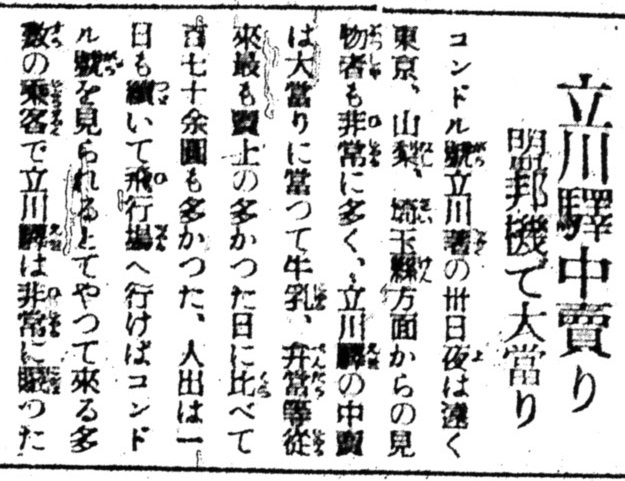 立川驛中賣り
盟邦機で大當り
コンドル號立川著の卅日夜は遠く
東京、山梨、埼玉縣方面からの見
物者も非常に多く、立川驛の中賣
は大當りに當つて牛乳、弁當等從
來最も賣上の多かつた日に比べて
百七十余圓も多かつた、人出は一
日も續いて飛行場へ行けばコンド
ル號を見られるとてやつて來る多
數の乘客で立川驛は非常に賑つた